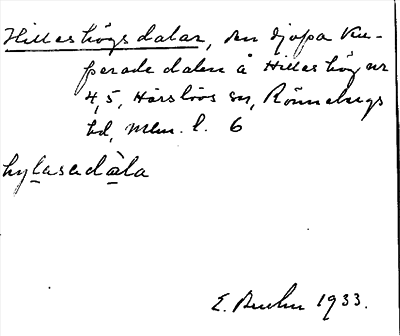 Hilleshögsdalar, den djupa ku-
perade dalen å Hilleshög nr
4,5, Härslövs sn, Rönnebergs
hd, Mlm. l. 6
hylasadàla
E. Bruhn 1933.